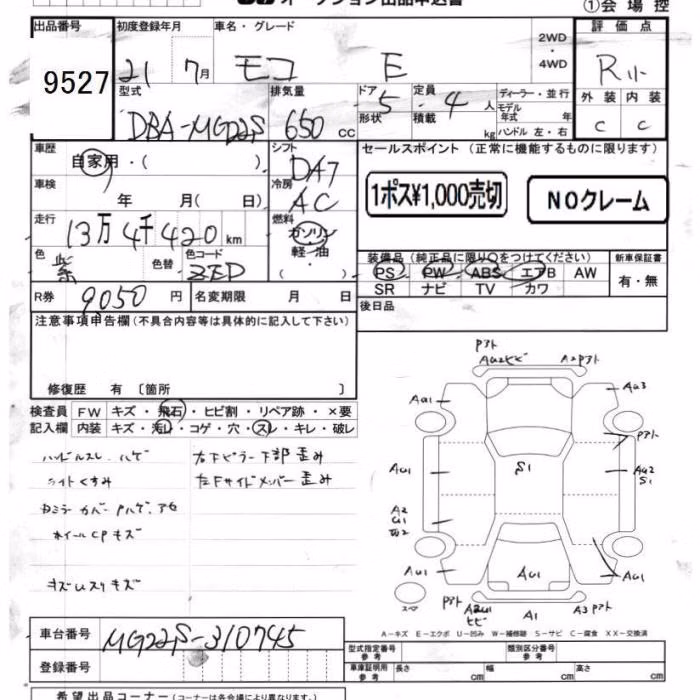 オークション出品申込書
①会場控
出品番号
9527
初度登録年月
21 7月
車名・グレード
モコ E
2WD
・
4WD
評価点
R
外装 内装
C C
型式
DBA-MG22S
排気量
650 cc
ドア 5
形状
定員 4 人
積載 kg
ディーラー・並行
モデル年式 年
ハンドル 左・右
車歴
自家用・( )
シフト
DA7
車検
年 月( 日)
冷房
AC
セールスポイント (正常に機能するものに限ります)
1ポス¥1,000売切
NOクレーム
走行
13万4千420km
燃料
ガソリン
軽・油
( )
色
紫
色替
色コード
ZED
装備品 (純正品に限り○をつけてください)
PS PW ABS エアB AW
SR ナビ TV カワ
新車保証書
有・無
R券 9050円
名変期限 月 日
後日品
注意事項申告欄(不具合内容等は具体的に記入して下さい)
修復歴 有 〔箇所 〕
検査員
記入欄
FW キズ・飛石・ヒビ割・リペア跡・×要
内装 キズ・汚れ・コゲ・穴・スレ・キレ・破レ
ハンドルスレ、ハゲ
ライトくすみ
ホイールCPキズ
右Fピラー下部歪み
左Fサイドメンバー歪み
Pアト
AU2ヒビ A2Pアト
AU1 AU3
Pアト
AU1 S1 AU2
S1
A2
U1
W2
AU1 AU1 AU1
スペア
Pアト
ヒビ
A1
A3Pアト
A-キズ E-エクボ U-凹み W-補修跡 S-サビ C-腐食 XX-交換済
車台番号
MG22S-310745
登録番号
型式指定番号
参考
類別区分番号
参考
車庫証明用
参考
長さ cm
幅 cm
高さ cm
希望出品コーナー(各会場により異なります。)